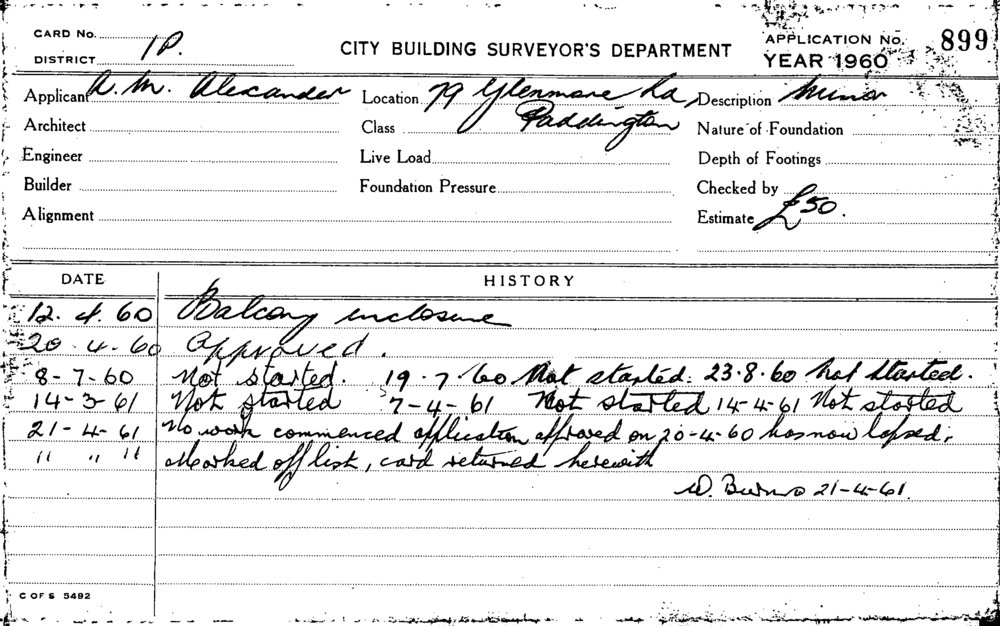 CARD No.
DISTRICT 1P.
CITY BUILDING SURVEYOR'S DEPARTMENT
APPLICATION No. 899
YEAR 1960
Applicant A. M. Alexander Location 79 Glenmore Rd, Description Minor
Architect Class Paddington Nature of Foundation
Engineer Live Load Depth of Footings
Builder Foundation Pressure Checked by
Alignment Estimate £50.
DATE HISTORY
12. 4. 60 Balcony inclosure
20. 4. 60 Approved.
8-7-60 Not started. 19.7.60 Not started. 23.8.60 Not started.
14-3-61 Not started 7-4-61 Not started 14-4-61 Not started
21-4-61 No work commenced application approved on 20-4-60 has now lapsed.
" " " Marked off list, card returned herewith
W. Burns 21-4-61.
C OF S 5492